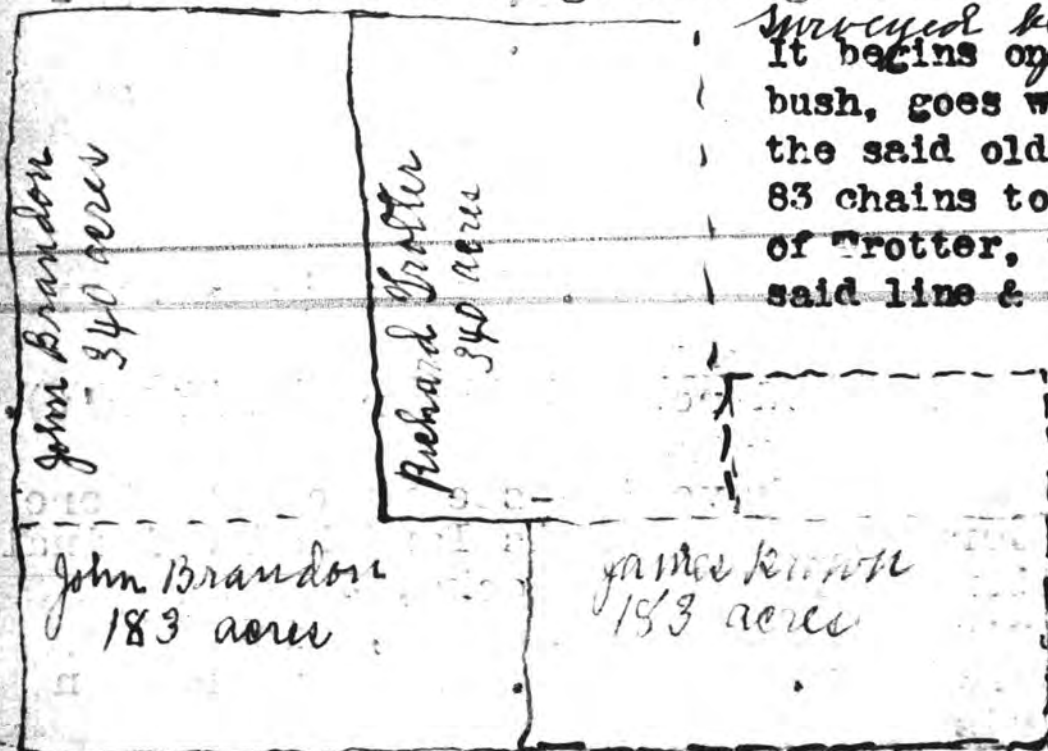 surveyed
It begins on
bush, goes w
the said old
83 chains to
of Trotter,
said line &
John Brandon
340 acres
Richard Trotter
340 acres
John Brandon
183 acres
James
183 acres